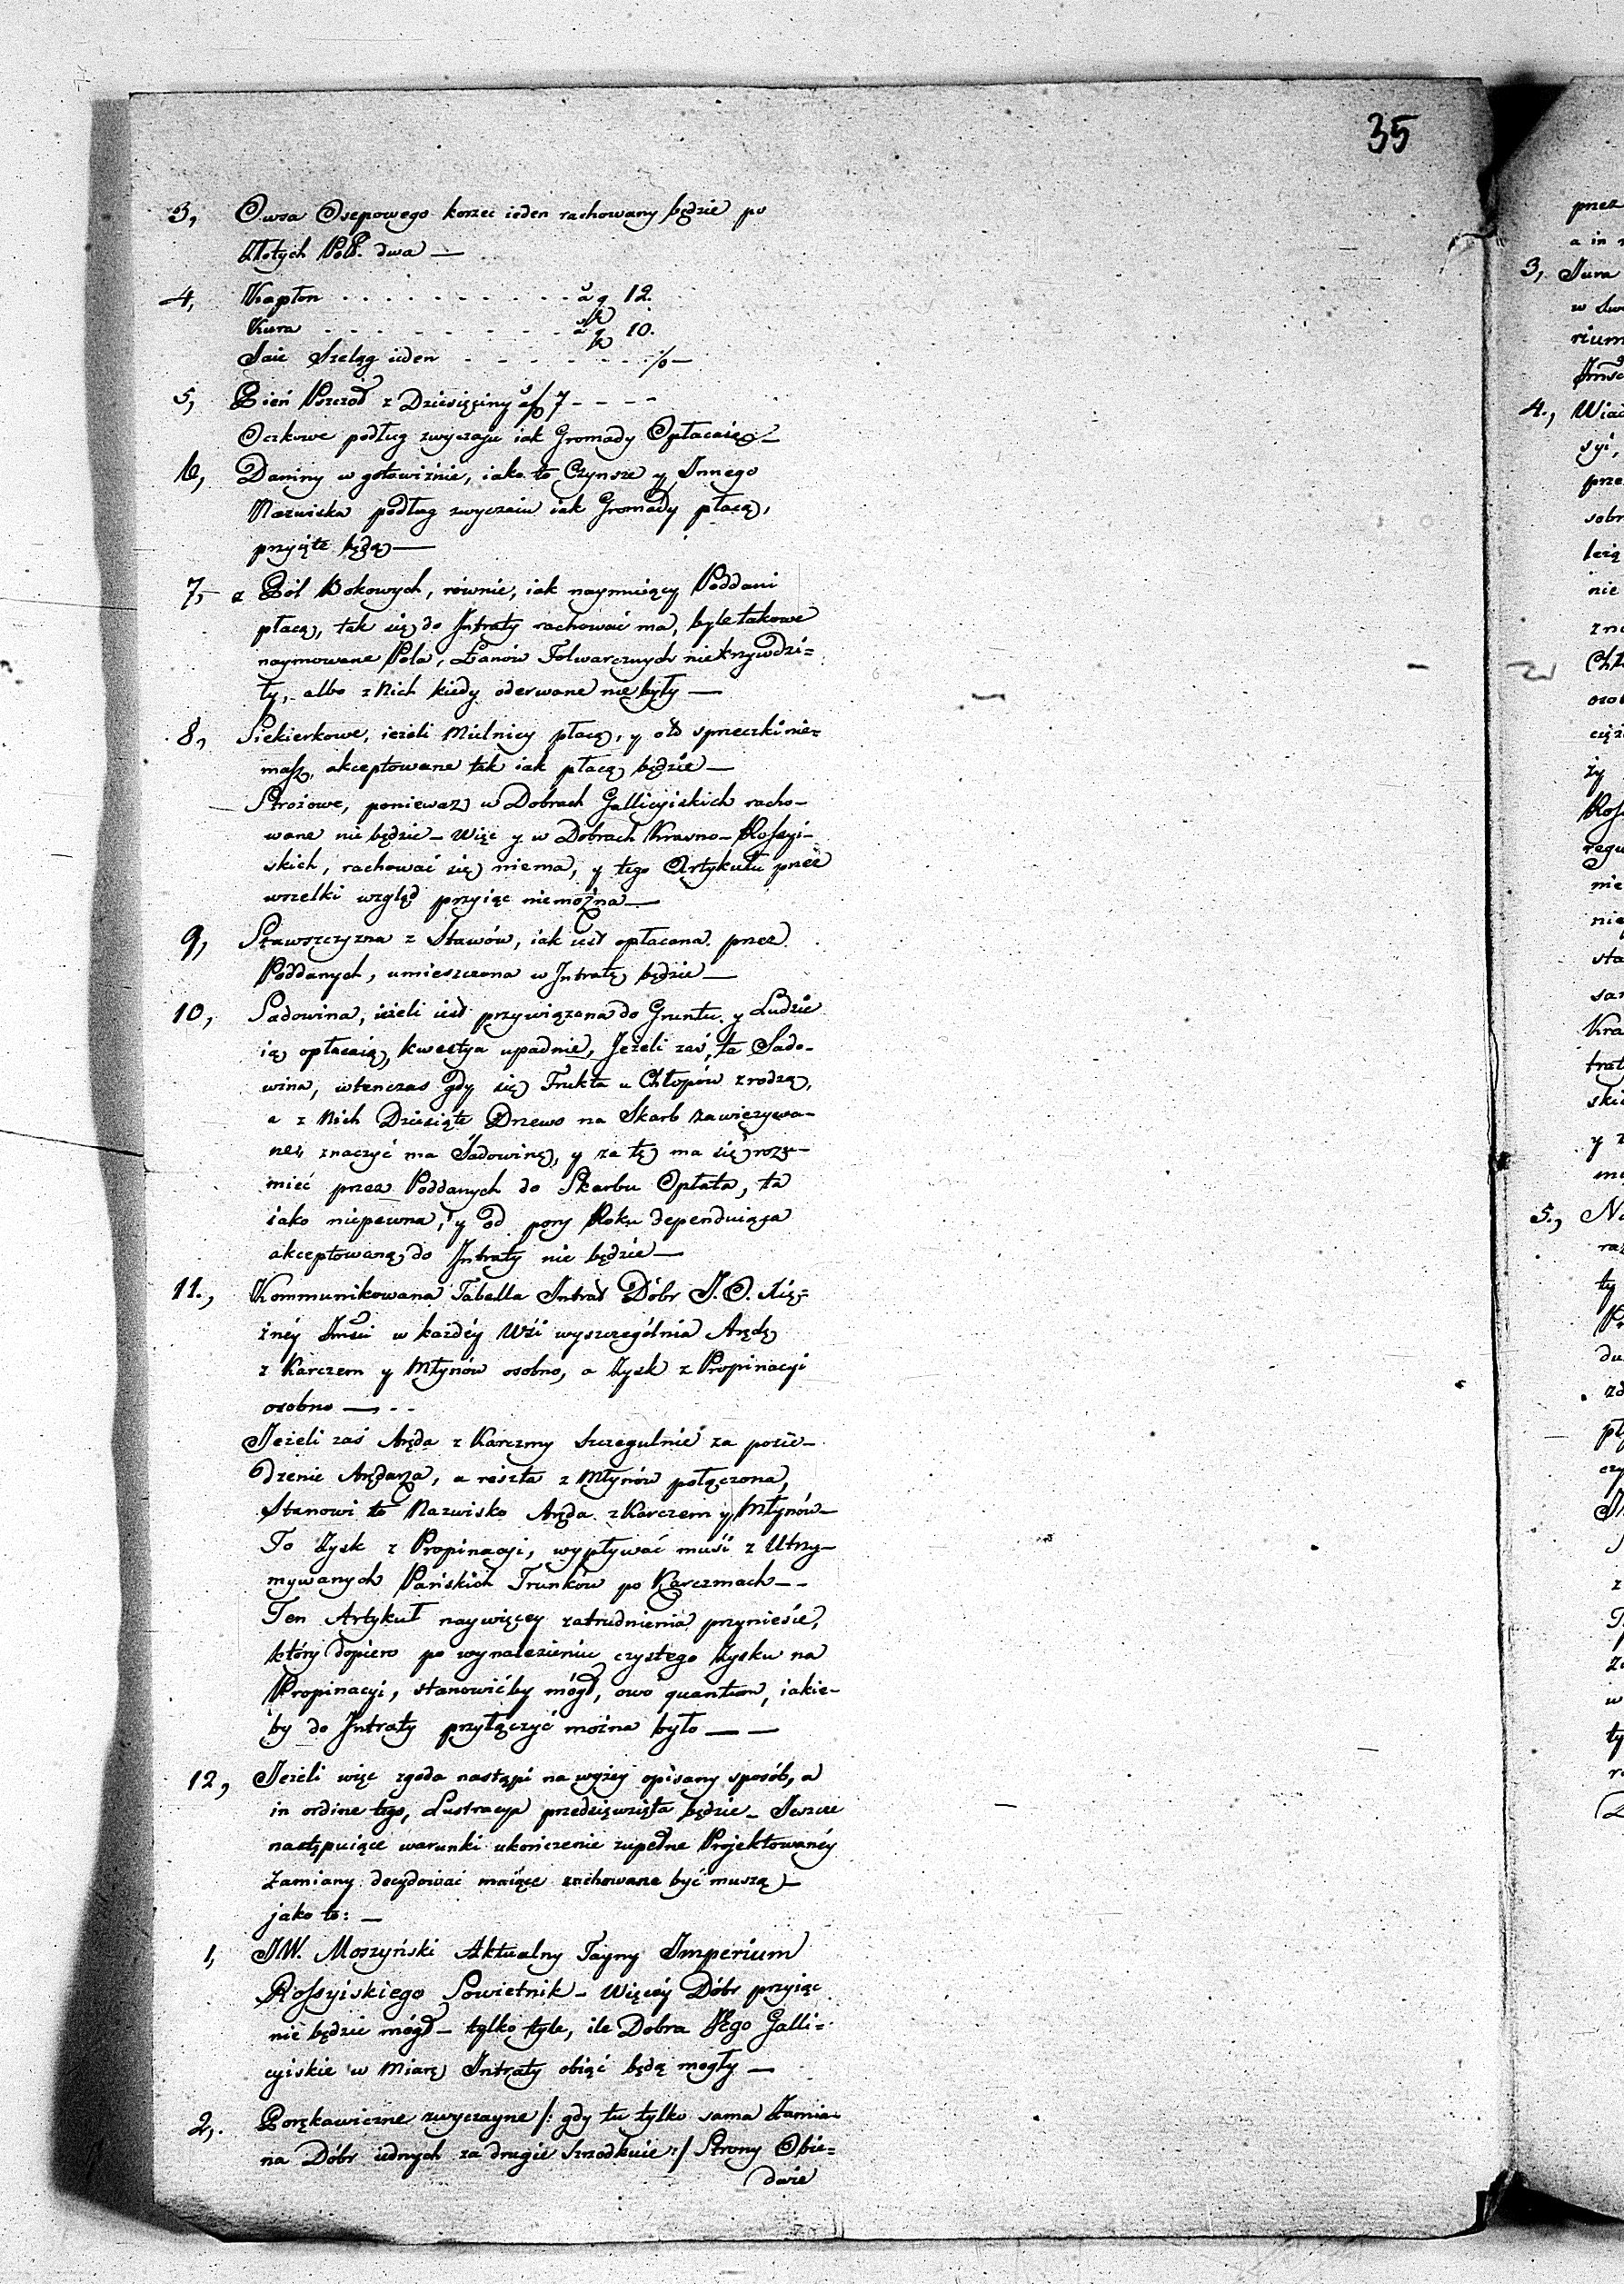 35
3, Owsa Osepowego korzec ieden rachowany będzie po
Złotych Pols. dwa —
4, Kapłon . . . . . . . . . . . à g 12.
Kura . . . . . . . . . à g 10.
Jaie Szeląg ieden - - - - - - - %—
5, Pień Pszczoł z Dziesięciny à f 7 - - - -
Oczkowe podług zwyczaju iak Gromady Opłacaią —
6, Daniny w gotowiźnie, iako to Czynsze y Innego
Nazwiska podług zwyczaiu iak Gromady płacą,
przyięte będą —
7, z Pól Bokowych, równie, iak naymuiący Poddani
płacą, tak się do Intraty rachować ma, byle takowe
naymowane Pola, Łanów Folwarcznych nie krzywdzi=
ły, albo z Nich kiedy oderwane nie były —
8, Siekierkowe, ieżeli Mielnicy płacą, y o to sprzeczki nie=
masz, akceptowane tak iak płacą będzie —
Strożowe, ponieważ w Dobrach Gallicyiskich racho-
wane nie będzie — więc y w Dobrach Krasno-Rossyi-
skich, rachować się niema, y tego Artykułu przez
wszelki wzgląd przyiąc niemożna —
9, Stawszczyzna z Stawów, iak iest opłacana przez
Poddanych, umieszczona w Intratę będzie —
10, Sadowina, ieżeli iest przywiązana do Gruntu y Ludzie
ią opłacaią, kwestya upadnie, Jeżeli zaś, ta Sado-
wina, wtenczas gdy się Frukta u Chłopów zrodzą,
a z Nich Dziesiąte Drzewo na Skarb zawięzywa-
ne, znaczyć ma Sadowinę, y za tę ma się rozu-
mieć przez Poddanych do Skarbu Opłata, ta
iako niepewna, y od pory Roku dependuiąca
akceptowaną do Intraty nie będzie —
11., Kommunikowana Tabella Intrat Dóbr J. O. Xię=
żnéy Jmści w każdéy Wsi wyszczególnia Arędę
z Karczem y Młynów osobno, a Zysk z Propinacyi
osobno — . - -
Jeżeli zaś Aręda z Karczmy szczegulnie za posie-
dzenie Arędarza, a reszta z Młynów połączona,
Stanowi to Nazwisko Aręda z Karczem y Młynów —
To Zysk z Propinacyi, wypływać musi z Utrzy-
mywanych Pańskich Trunków po Karczmach - -
Ten Artykuł naywięcey zatrudnienia przyniesie,
który dopiero po wynalezieniu czystego Zysku na
Propinacyi, stanowićby mógł, owo quantum, iakie-
by do Intraty przyłączyć można było — —
12, Jeżeli więc zgoda nastąpi na wyżey opisany sposób, a
in ordine tego, Lustracya przedsięwzięta będzie — Jeszcze
następuiące warunki ukończenie zupełne Projektowanéy
Zamiany decydować maiące zachowane być muszą —
jako to: —
1, JW. Moszyński Aktualny Tayny Imperium
Rossyiskiego Sowietnik — Więcéy Dóbr przyiąc
nie będzie mógł — tylko tyle, ile Dobra Jego Galli=
cyiskie w Miarę Intraty obiąć będą mogły —
2,. Porękawiczne zwyczayne /: gdy tu tylko sama Zamia-
na Dóbr iednych za drugie szrodkuie :/ Strony Obie=
dwie
przez
a in
3, Jura
w
rium
4.,
prze
nie
y
5.,